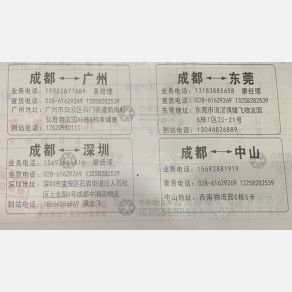 成都 ↔ 广州
业务电话：15902877689 吴经理
查货电话：028-61629269 13258282539
广州地址：广州市白云区石门街道鸦岗村
弘胜物流园A6栋8档柬埔寨
到站电话：17620980111
成都 ↔ 东莞
业务电话：13183885658 廖经理
查货电话：028-61629269 13258282539
东莞地址：东莞市道滘镇健飞物流园
5栋1区20-21号
到站电话：13046826889
成都 ↔ 深圳
业务电话： 廖经理
查货电话：028-61629269 13258282539
深圳地址：深圳市宝安区石岩街道应人石社
区上龙路5号成都中湘远物流
到站电话：18664556869 谭龙飞
成都 ↔ 中山
业务电话：15692881919
查货电话：028-61629269 13258282539
中山地址：西南物流园C栋5卡